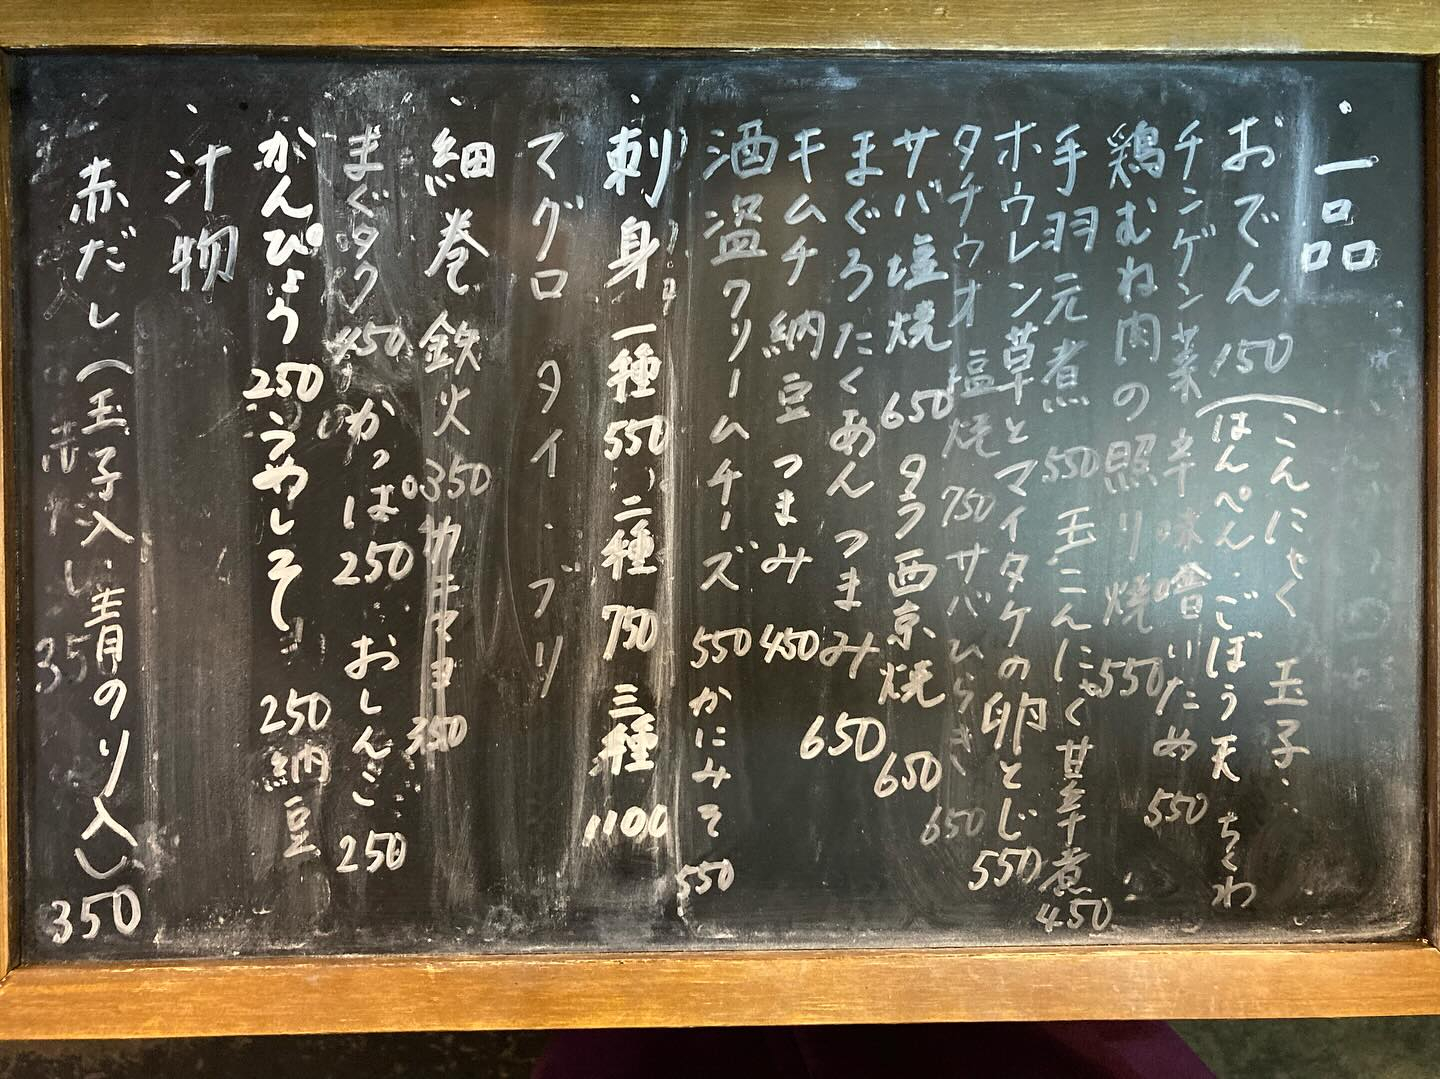 ・一品
おでん 150 (こんにゃく 玉子・
はんぺん・ごぼう天 ちくわ
チンゲン菜 辛味噌いため 550
鶏むね肉の照り焼 550
手羽元煮 550 玉こんにゃく甘辛煮 450
ホウレン草とマイタケの卵とじ 550
タチウオ塩焼 750 サバひらき 650
サバ塩焼 650 タラ西京焼 650
まぐろたくあんつまみ 650
キムチ納豆つまみ 450
酒盗クリームチーズ 550 かにみそ 550
・刺身 一種 550 二種 750 三種 1100
マグロ タイ・ブリ
・細巻 鉄火 350 カニマヨ 350
まぐタク 450 かっぱ 250 おしんこ 250
かんぴょう 250 うめしそ 250 納豆
・汁物
赤だし(玉子入い青のり入) 350